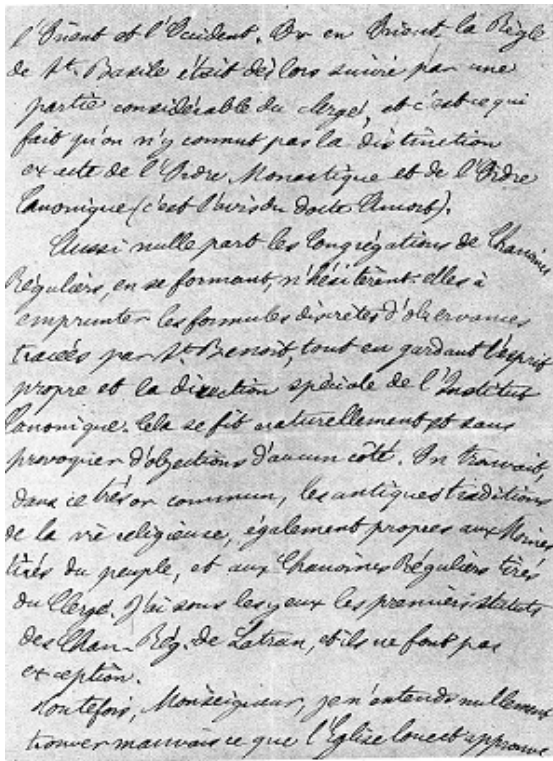 l'Orient et l'Occident. Or en Orient la Règle
de St. Basile était dès lors suivie par une
partie considérable du clergé, et c'est ce qui
fait qu'on n'y connut pas la distinction
exacte de l'Ordre Monastique et de l'Ordre
Canonique (c'est l'avis du docte Amort).
Aussi nulle part les Congrégations de Chanoines
Réguliers, en se formant, n'hésitèrent-elles à
emprunter les formules discrètes d'observances
tracées par St Benoit, tout en gardant l'esprit
propre et la direction spéciale de l'Institut
Canonique. Cela se fit naturellement et sans
provoquer d'objections d'aucun côté. On trouvait,
dans ce trésor commun, les antiques traditions
de la vie religieuse, également propres aux Moines
tirés du peuple, et aux Chanoines Réguliers tirés
du Clergé. J'ai sous les yeux les premiers statuts
des Chan. Rég. de Latran, et ils ne font pas
exception.
Toutefois, Monseigneur, je n'entends nullement
trouver mauvais ce que l'Eglise loue et approuve